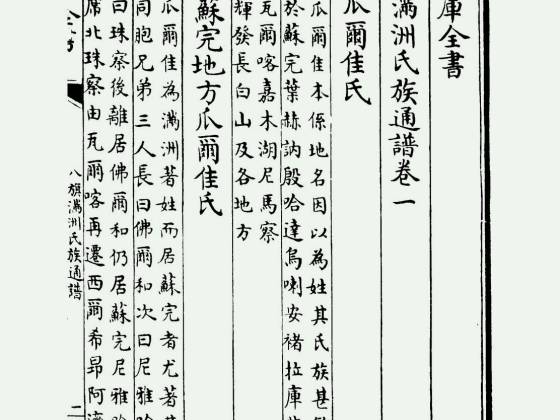 庫全書
滿洲氏族通譜卷一
瓜爾佳氏
瓜爾佳本係地名因以為姓其氏族甚
於蘇完葉赫訥殷哈達烏喇安褚拉庫
瓦爾喀嘉木湖尼馬察
輝發長白山及各地方
蘇完地方瓜爾佳氏
瓜爾佳為滿洲著姓而居蘇完者尤著
同胞兄弟三人長曰佛爾和次曰尼雅哈
曰珠察後離居佛爾和仍居蘇完尼雅哈
席北珠察由瓦爾喀再遷西爾希昂阿濟
八旗滿洲氏族通譜
二